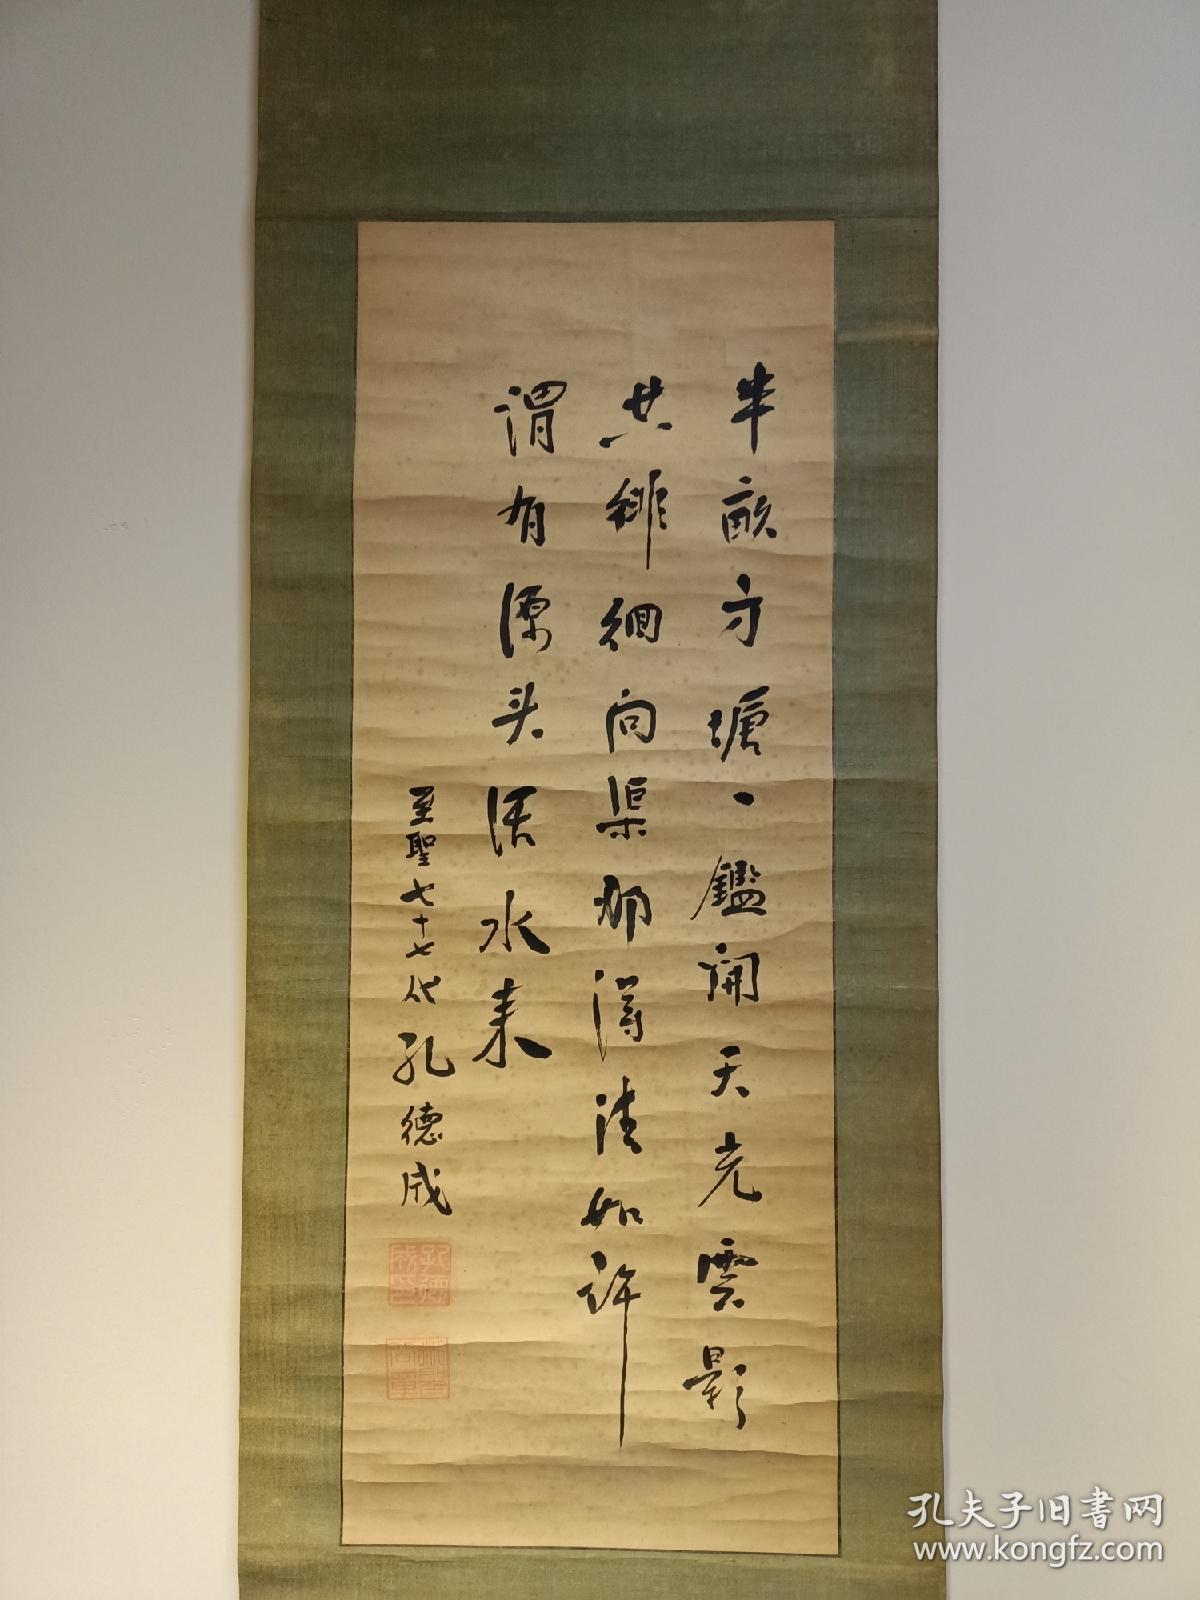 半畝方塘一鑑開天光雲影
共徘徊問渠那得清如許
謂有源头活水来
至聖七十七代孔德成
孔德成印
孔夫子旧书网
www.kongfz.com